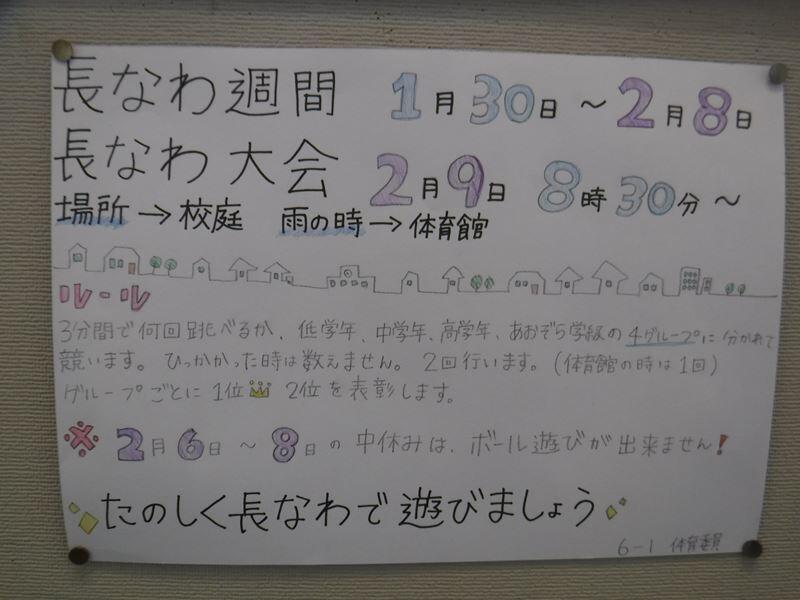 長なわ週間 1月30日～2月8日
長なわ大会 2月9日 8時30分～
場所→校庭 雨の時→体育館
ルール
3分間で何回跳べるか、低学年、中学年、高学年、あおぞら学級の4グループに分かれて
競います。ひっかかった時は数えません。2回行います。(体育館の時は1回)
グループごとに1位 2位を表彰します。
※2月6日～8日の中休みは、ボール遊びが出来ません!
たのしく長なわで遊びましょう
6-1 体育委員